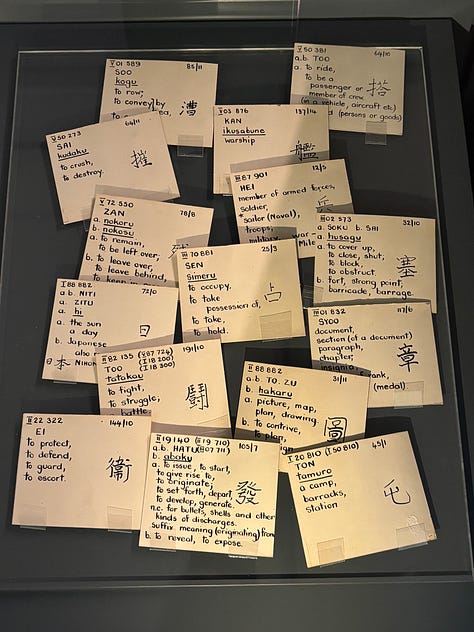 V 01 589 85/11
SOO
kogu
to row;
to convey by
漕
V 50 381 64/10
a.b. TOO
a. to ride,
to be a
passenger or
member of crew
(in a vehicle, aircraft etc)
(persons or goods)
搭
V 50 273 64/11
SAI
kudaku
to crush,
to destroy.
摧
V 03 876 137/14
KAN
ikusabune
warship
艦
12/5
HEI
member of armed forces,
soldier,
sailor (Naval),
troops,
military, war
兵
V 72 550 78/8
ZAN
a. nokoru
b. nokosu
a. to remain,
to be left over,
b. to leave over,
to leave behind,
to keep in
残
III 70 881 25/3
SEN
simeru
to occupy,
to take
possession of,
to take,
to hold.
占
02 573 32/10
a. SOKU b. SAI
a. husagu
a. to cover up,
to close, shut,
to block,
to obstruct
b. fort, strong point,
barricade, barrage.
塞
I 88 882 72/0
a.b. NITI
a. ZITU
a. hi
a. the sun
a day
b. Japanese
also
日本 NIHON
日
82 135 191/10
TOO
tatakau
to fight,
to struggle,
battle
鬪
01 832 117/6
SYOO
document,
section (of a document)
paragraph,
chapter,
insignia
rank,
(medal).
章
88 882 31/11
a.b. TO. ZU
b. hakaru
a. picture, map,
plan, drawing.
b. to contrive,
to plan,
圖
II 22 322 144/10
EI
to protect,
to defend,
to guard,
to escort.
衞
19 140 105/7
a.b. HATU
b. abaku
a. to issue, to start,
to give rise to,
to originate;
to set forth, depart,
to develop, generate.
n.c. for bullets, shells and other
kinds of discharges.
Suffix meaning (originating) from
b. to reveal, to expose.
發
I 20 810 (I 50 810) 45/1
TON
tamuro
a camp,
barracks,
station
屯